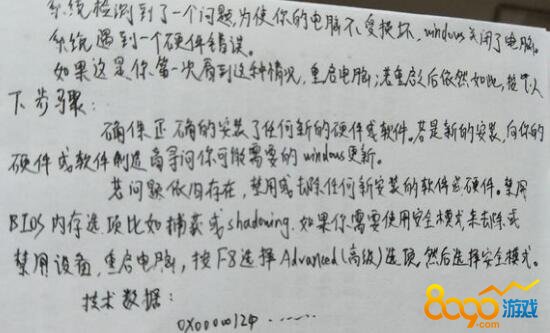 系统检测到了一个问题,为使你的电脑不受损坏,windows关闭了电脑。
系统遇到一个硬件错误。
如果这是你第一次看到这种情况,重启电脑;若重启之后依然如此,按以
下步骤:
确保正确的安装了任何新的硬件或软件。若是新的安装,向你的
硬件或软件制造商寻问你可能需要的windows更新。
若问题依旧存在,禁用或去除任何新安装的软件或硬件。禁用
BIOS内存选项比如捕获或shadowing.如果你需要使用安全模式来去除或
禁用设备,重启电脑,按F8选择Advanced(高级)选项,然后选择安全模式。
技术数据:
0X00000124······
8090游戏